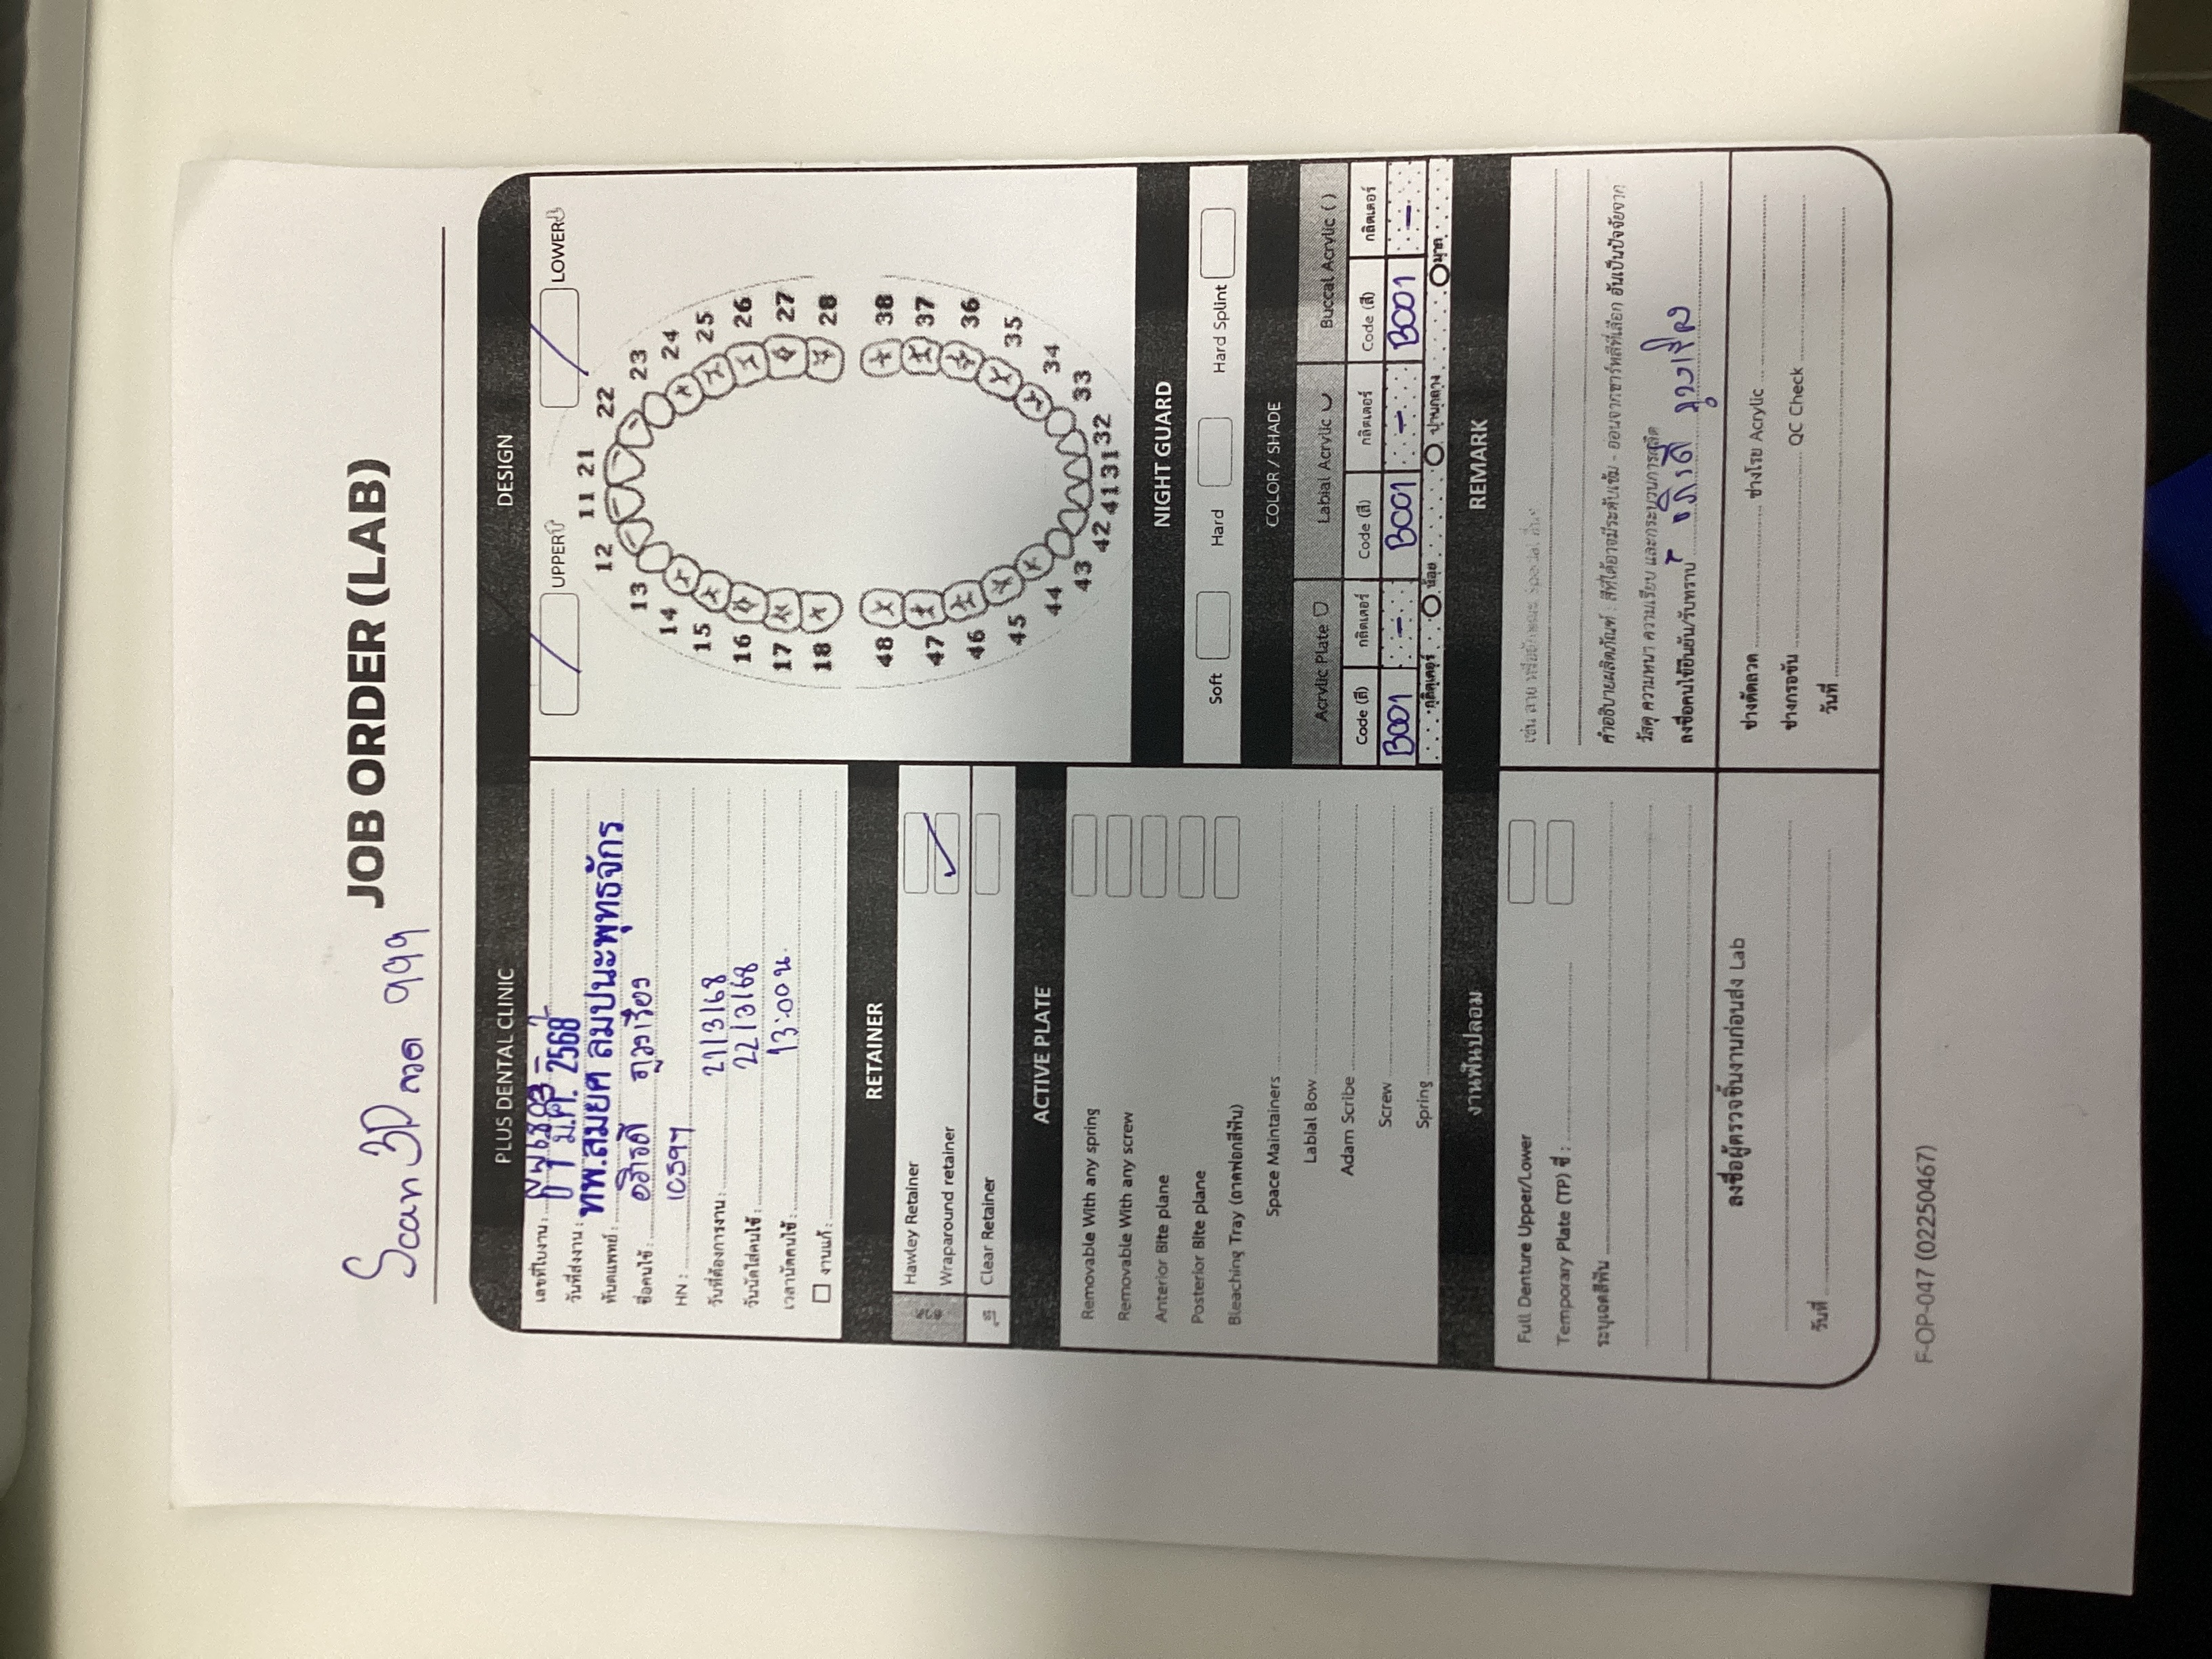 JOB ORDER (LAB)
Scan 3D ลวด 999
PLUS DENTAL CLINIC
เลขที่ใบงาน :
วันที่ส่งงาน : 0 1 มี.ค. 2568
ทันตแพทย์ : ทพ.สมยศ ลมปนะพุทธจักร
ชื่อคนไข้ : อภิรดี ภูวงเรือง
HN : 10597
วันที่ต้องการงาน : 21/3/68
วันนัดใส่คนไข้ : 22/3/68
เวลานัดคนไข้ : 13:00 น.
งานแก้ :
RETAINER
ลวด
Hawley Retainer
Wraparound retainer
ใส
Clear Retainer
ACTIVE PLATE
Removable With any spring
Removable With any screw
Anterior Bite plane
Posterior Bite plane
Bleaching Tray (ถาดฟอกสีฟัน)
Space Maintainers
Labial Bow
Adam Scribe
Screw
Spring
งานฟันปลอม
Full Denture Upper/Lower
Temporary Plate (TP) ซี่ :
ระบุเฉดสีฟัน
ลงชื่อผู้ตรวจชิ้นงานก่อนส่ง Lab
วันที่
DESIGN
UPPER LOWER
11 21
12 22
13 23
14 24
15 25
16 26
17 27
18 28
48 38
47 37
46 36
45 35
44 34
43 33
42 41 31 32
NIGHT GUARD
Soft Hard Hard Splint
COLOR / SHADE
Acrylic Plate Labial Acrylic Buccal Acrylic ( )
Code (สี) กลิตเตอร์ Code (สี) กลิตเตอร์ Code (สี) กลิตเตอร์
B001 - B001 - B001 -
กลิตเตอร์ น้อย ปานกลาง มาก
REMARK
เช่น ลาย หรือลักษณะ Special อื่นๆ
คำอธิบายผลิตภัณฑ์ : สีที่ได้อาจมีระดับเข้ม - อ่อนจากชาร์ทสีที่เลือก อันเป็นปัจจัยจาก
วัสดุ ความหนา ความเรียบ และกระบวนการผลิต
ลงชื่อคนไข้ยืนยัน/รับทราบ อภิรดี ภูวงเรือง
ช่างดัดลวด ช่างโรย Acrylic
ช่างกรอขัน QC Check
วันที่
F-OP-047 (02250467)